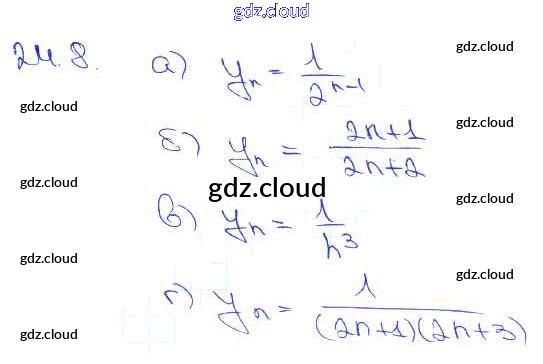 gdz.cloud
24.8. а) yₙ = 1/2ⁿ⁻¹
gdz.cloud
gdz.cloud
б) yₙ = (2n+1)/(2n+2)
gdz.cloud
gdz.cloud
gdz.cloud
gdz.cloud
в) yₙ = 1/n³
gdz.cloud
gdz.cloud
г) yₙ = 1/((2n+1)(2n+3))
gdz.cloud
gdz.cloud